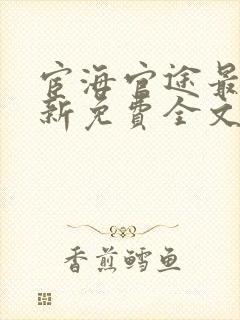 宦海官途最
新免費全文
香煎鳕鱼